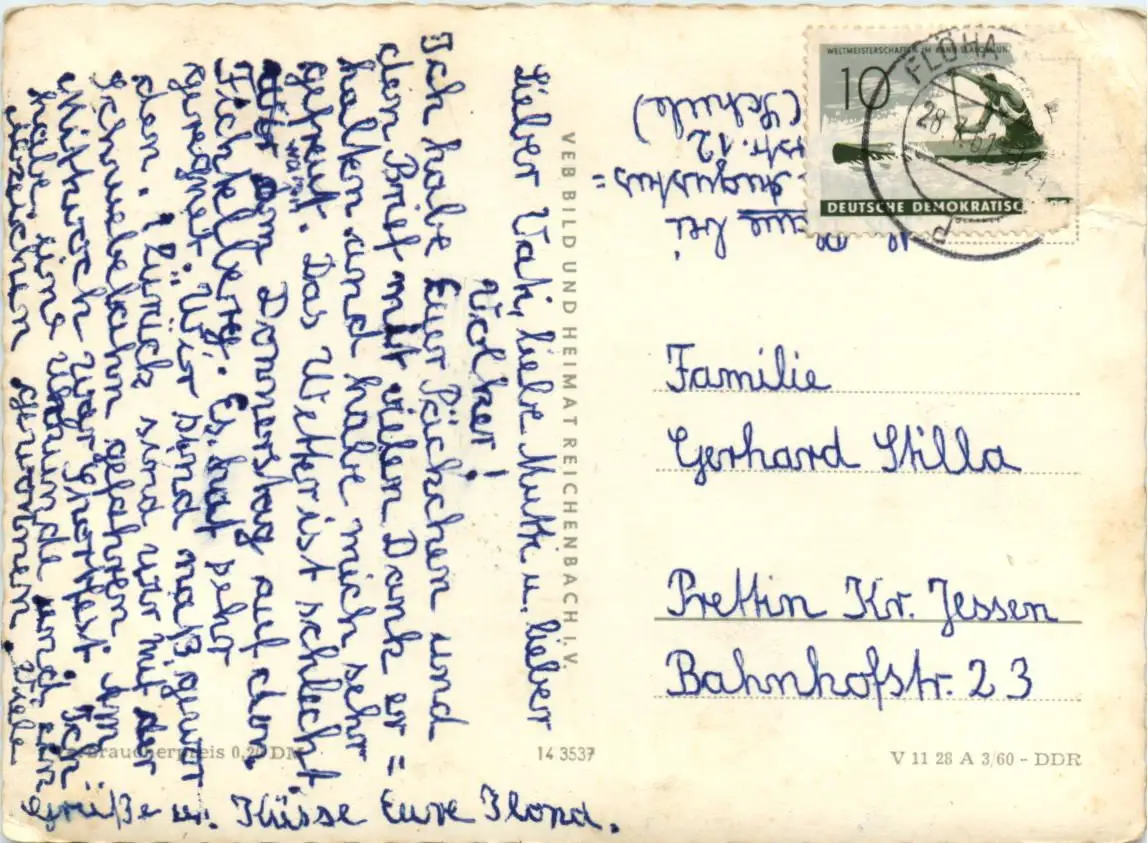 Lieber Vati, liebe Mutti u. lieber
Volker!
Ich habe Euer Päckchen und
den Brief mit vielen Dank er=
halten und habe mich sehr
gefreut. Das Wetter ist schlecht
waren
Am Donnerstag auf dem
Fichtelberg. Es hat sehr
geregnet. Wir sind naß gewor
den. Zurück sind wir mit der
Schwebebahn gefahren. Am
Mittwoch war Sportfest. Ich
habe eine Urkunde und ein
Abzeichen gewonnen. Viele
Grüße u. Küsse Eure Ilona.
VEB BILD UND HEIMAT REICHENBACH I. V.
bei
Augustus=
str. 12
(Schule)
WELTMEISTERSCHAFTEN IM KANU
10
DEUTSCHE DEMOKRATISC
FLÖHA
28
Familie
Gerhard Stilla
Prettin Kr. Jessen
Bahnhofstr. 23
Verbraucherpreis 0,20 DM
14 3537
V 11 28 A 3/60 - DDR